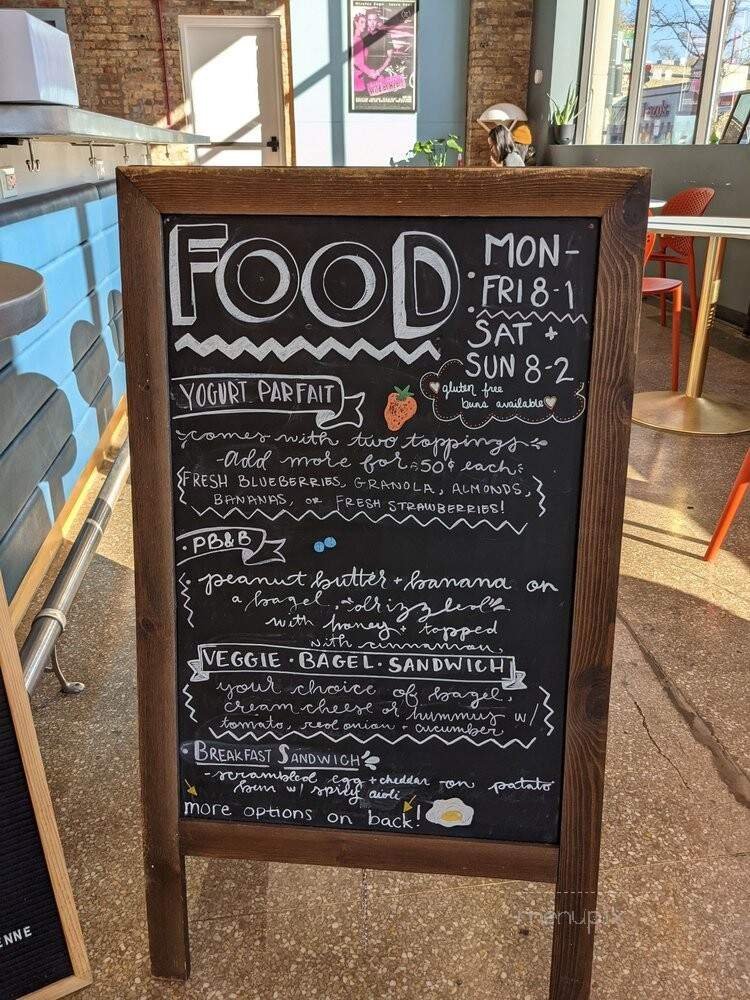 FOOD
MON-
FRI 8-1
SAT +
SUN 8-2
gluten free
buns available
YOGURT PARFAIT
comes with two toppings
-add more for 50¢ each:
FRESH BLUEBERRIES, GRANOLA, ALMONDS,
BANANAS, OR FRESH STRAWBERRIES!
PB&B
peanut butter + banana on
a bagel "drizzled"
with honey + topped
with cinnamon,
VEGGIE · BAGEL · SANDWICH
your choice of bagel,
cream cheese or hummus w/
tomato, red onion + cucumber
BREAKFAST SANDWICH
-scrambled egg + cheddar on potato
bun w/ spicy aioli
more options on back!
ENNE
menupix